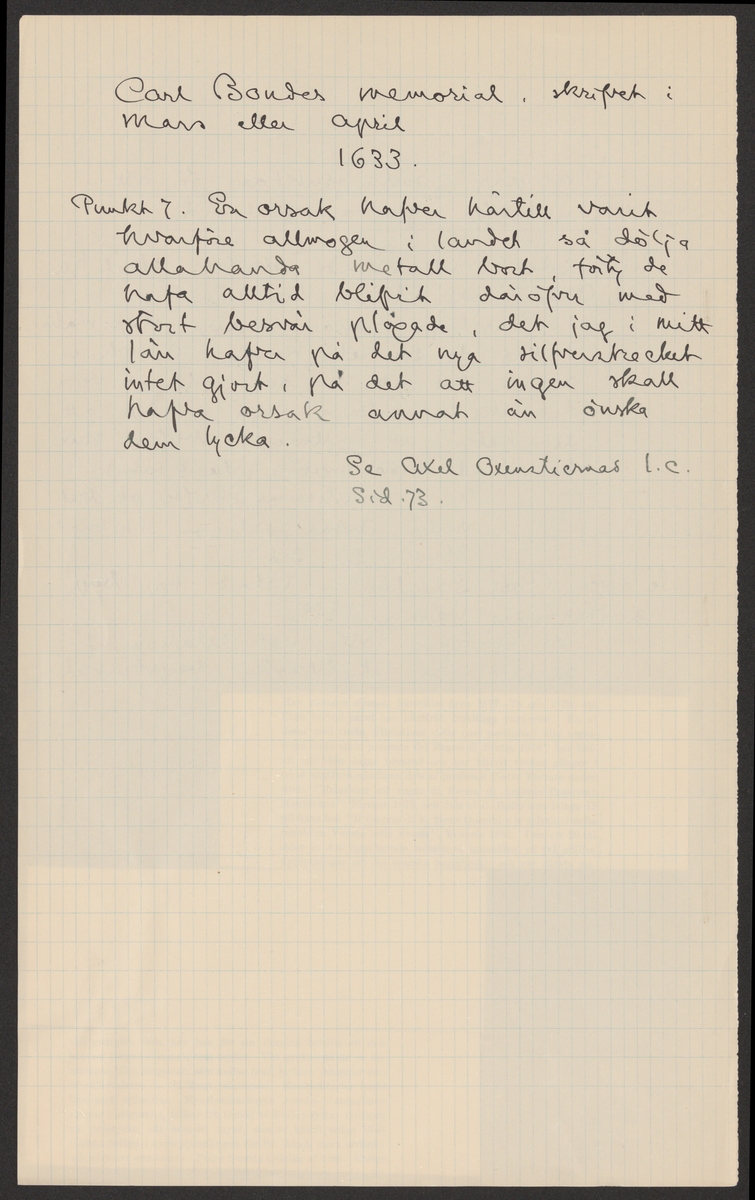 Carl Bondes memorial, skrifvet i
Mars eller April
1633.
Punkt 7. En orsak hafver härtill varit
hvarföre allmogen i landet så dölja
allahanda metall bort, förty de
hafa alltid blifvit däröfver med
stort besvär plågade, det jag i mitt
län hafver på det nya silfverstrecket
intet gjort, på det att ingen skall
hafva orsak annat än önska
dem lycka.
Se Axel Oxenstiernas l.c.
Sid. 73.